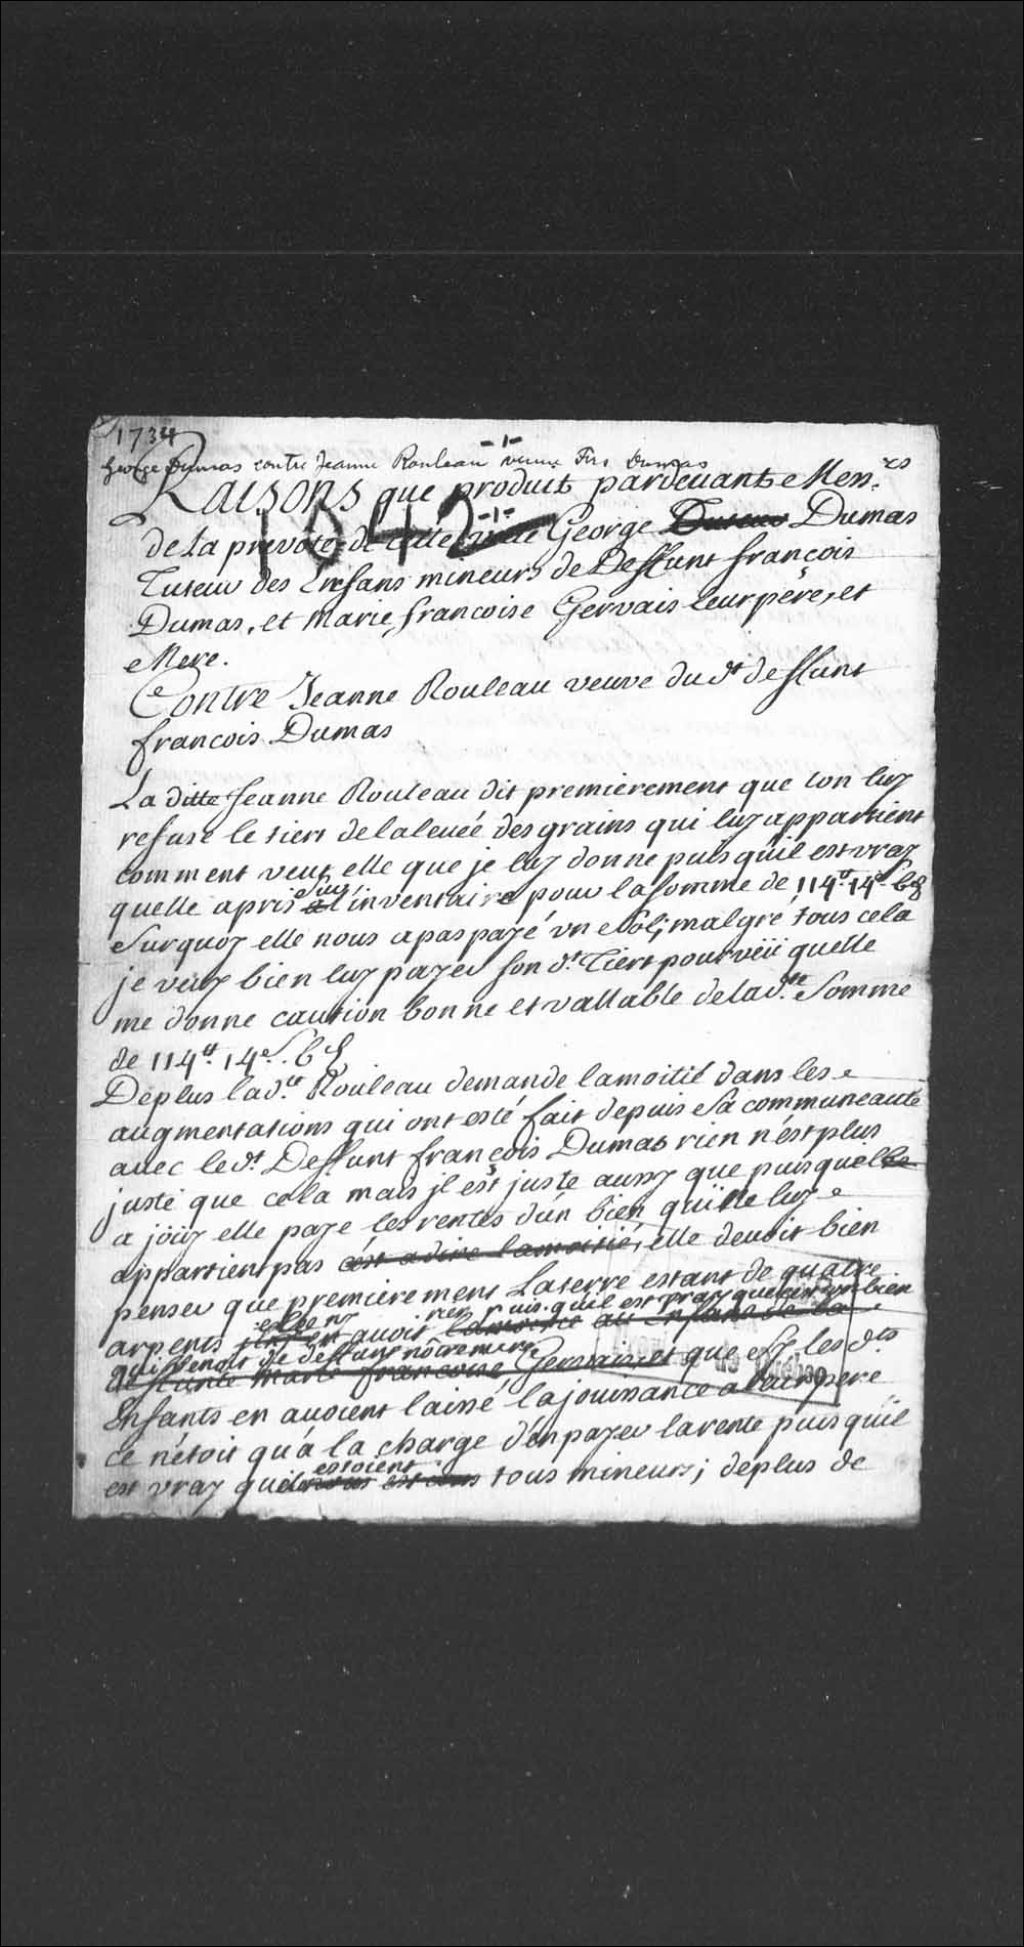 1734
-1-
George Dumas contre Jeanne Rouleau veuve Frs Dumas
Raisons que produit pardevant Messrs
de la prevoté de cette ville George Tuteur Dumas
1042
-1-
Tuteur des Enfans mineurs de Deffunt françois
Dumas, et Marie francoise Gervais leur père, et
Mere.
Contre Jeanne Rouleau veuve du dt deffunt
francois Dumas
La ditte Jeanne Rouleau dit premierement que lon luy
refuse le tiers de la levée des grains qui luy appartient
comment veut elle que je luy donne puis quil est vray
quelle a pris sur l'inventaire pour la somme de 114tt 14s 6d
Surquoy elle nous a pas payé un Sol; malgré tous cela
je veux bien luy payer son dt Tiers pourveü quelle
me donne caution bonne et vallable de la dtte Somme
de 114tt 14s. 6d
Deplus la dte Rouleau demande la moitié dans les
augmentations qui ont esté fait depuis Sa communeauté
avec le dt Deffunt françois Dumas rien n'est plus
juste que cela mais jl est juste aussy que puis quelle
a joüy elle paye les rentes d'un bien qui ne luy
appartient pas c'est a dire la moitié, elle devoit bien
penser que premierement La terre estant de quatre
elle ny rien puis quil est vray que cest un bien
arpents avoit la moitié aux Enfans de la
qui venoit de deffunte nôtre mere
deffunte Marie francoise Gervais, et que sy les dts
Enfants en avoient laissé la jouissance a leur pere
ce n'étoit qu'à la charge d'en payer la rente puis quil
estoient
est vray quils tous mineurs; deplus de